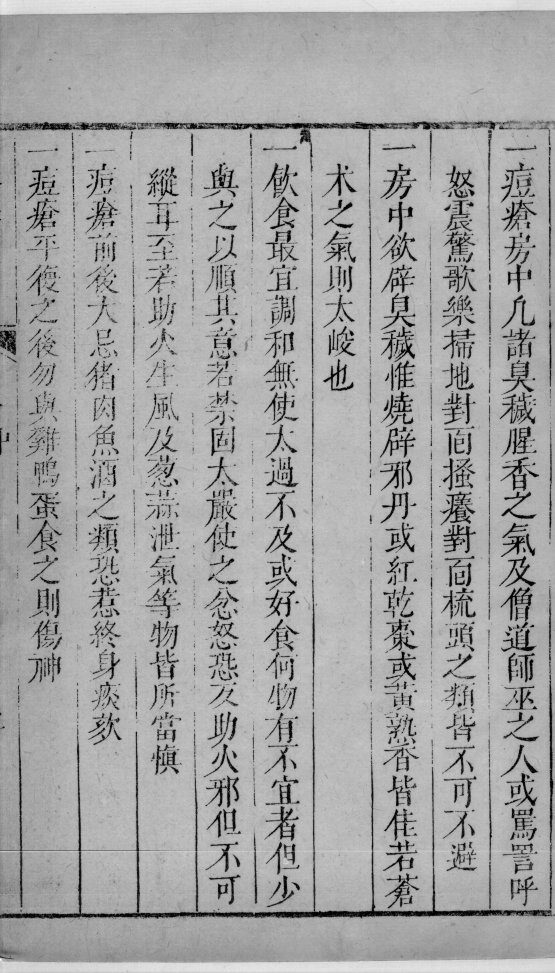 一痘瘡房中凡諸臭穢腥香之氣及僧道師巫之人或罵詈呼
怒震驚歌樂掃地對面搔癢對面梳頭之類皆不可不避
一房中欲辟臭穢惟燒辟邪丹或紅乾棗或黃熟香皆佳若蒼
术之氣則太峻也
一飲食最宜調和無使太過不及或好食何物有不宜者但少
與之以順其意若禁固太嚴使之忿怒恐反助火邪但不可
縱耳至若助火生風及葱蒜泄氣等物皆所當慎
一痘瘡前後大忌猪肉魚酒之類恐惹終身痰欬
一痘瘡平復之後勿與雞鴨蛋食之則傷神